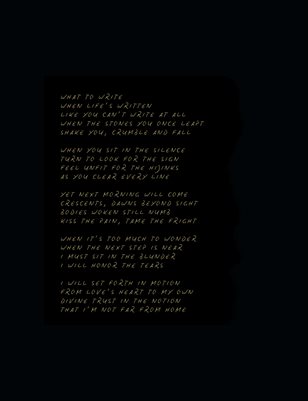 WHAT TO WRITE
WHEN LIFE'S WRITTEN
LIKE YOU CAN'T WRITE AT ALL
WHEN THE STONES YOU ONCE LEAPT
SHAKE YOU, CRUMBLE AND FALL
WHEN YOU SIT IN THE SILENCE
TURN TO LOOK FOR THE SIGN
FEEL UNFIT FOR THE HIJINKS
AS YOU CLEAR EVERY LINE
YET NEXT MORNING WILL COME
CRESCENTS, DAWNS BEYOND SIGHT
BODIES WOKEN STILL NUMB
KISS THE PAIN, TAME THE FRIGHT
WHEN IT'S TOO MUCH TO WONDER
WHEN THE NEXT STEP IS NEAR
I MUST SIT IN THE BLUNDER
I WILL HONOR THE TEARS
I WILL SET FORTH IN MOTION
FROM LOVE'S HEART TO MY OWN
DIVINE TRUST IN THE NOTION
THAT I'M NOT FAR FROM HOME